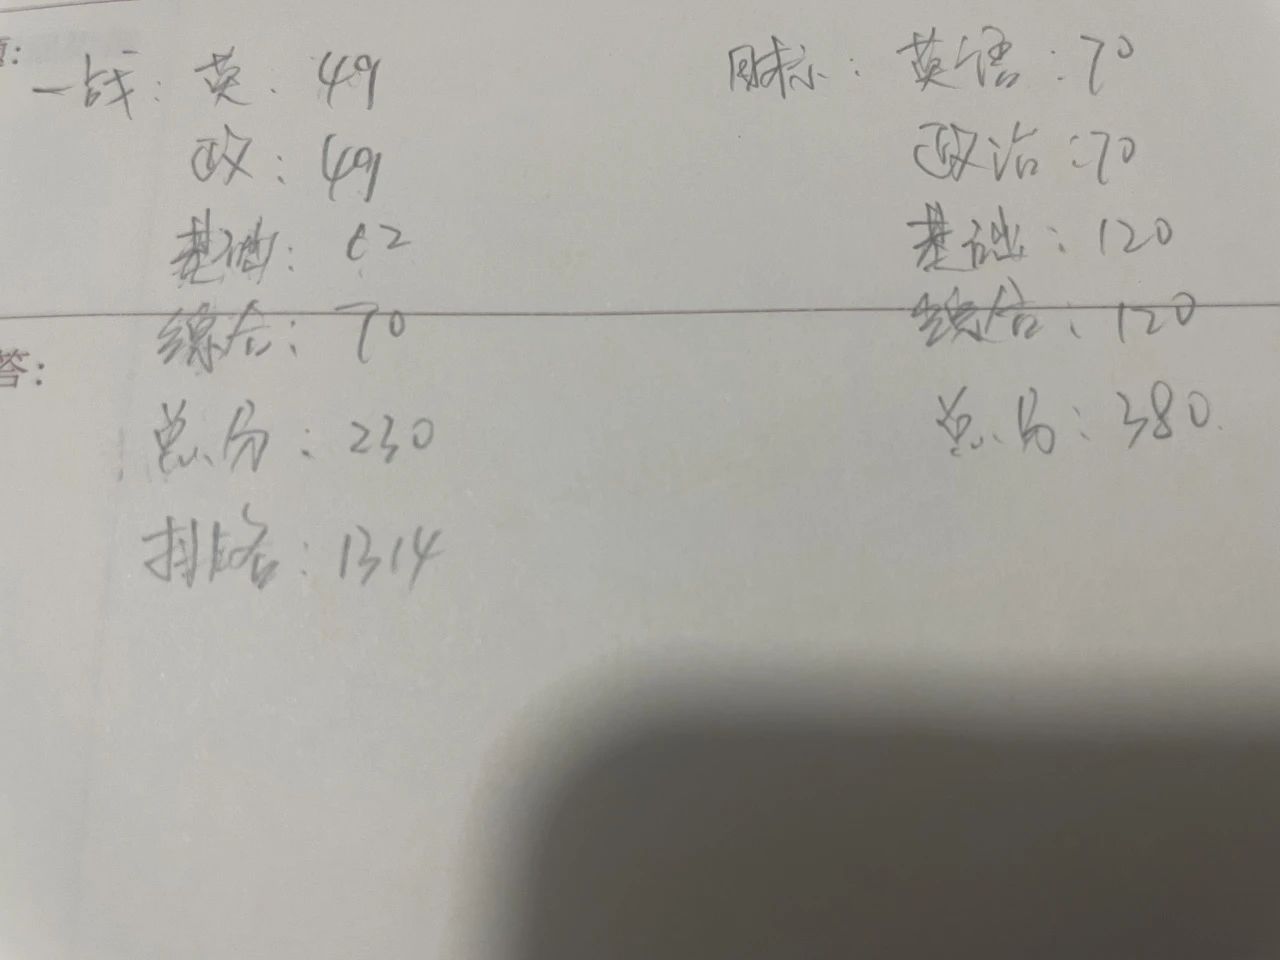 题:
一战: 英: 49
政: 49
基础: 62
综合: 70
总分: 230
排名: 1314
目标: 英语: 70
政治: 70
基础: 120
综合: 120
总分: 380
答: